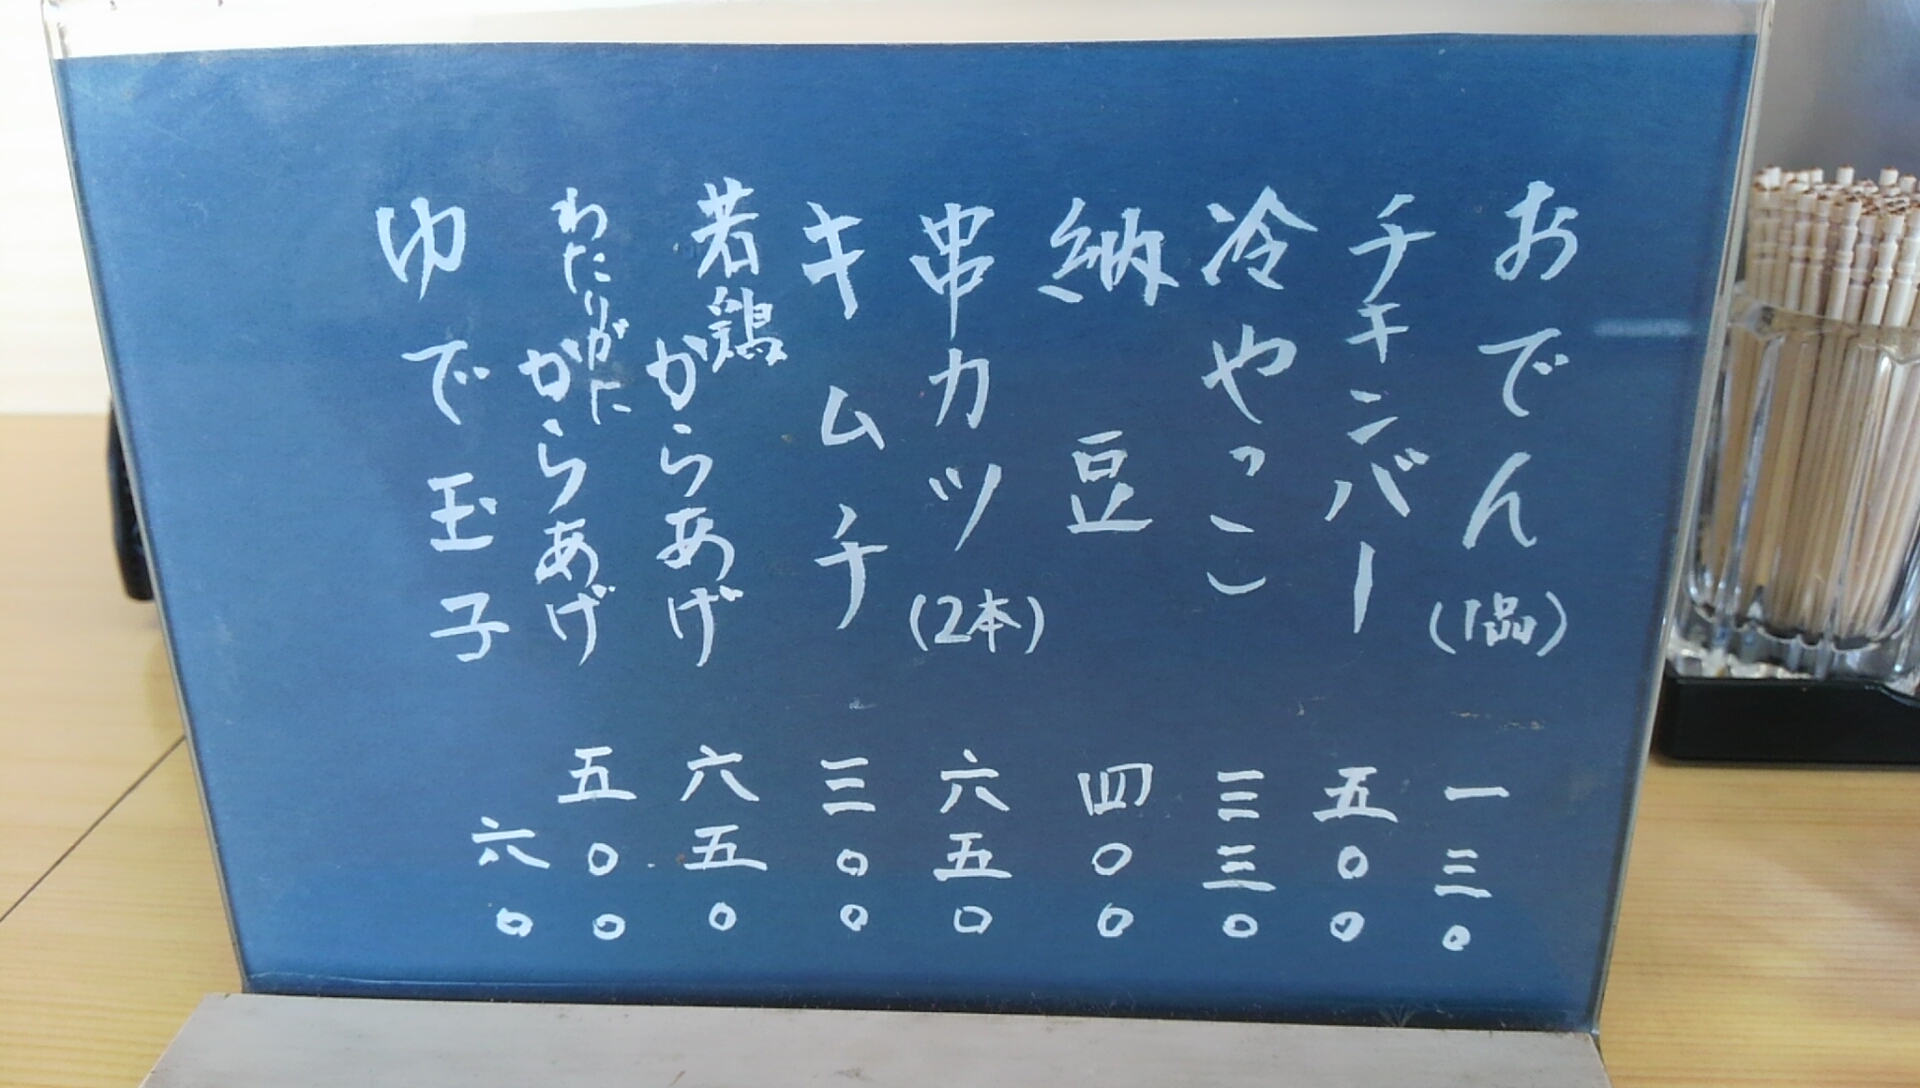 おでん(1品) 一三〇
チキンバー 五〇〇
冷やっこ 三三〇
納豆 四〇〇
串カツ(2本) 六五〇
キムチ 三〇〇
若鶏からあげ 六五〇
わたりがにからあげ 五〇〇
ゆで玉子 六〇